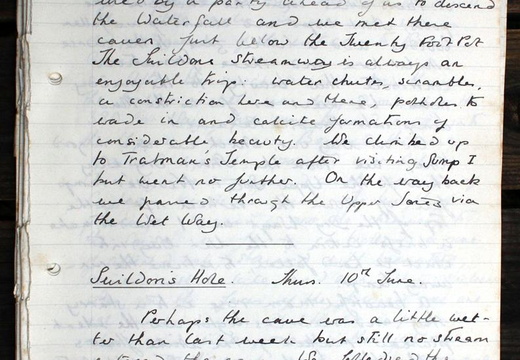 by a party ahead of us to descend
the Waterfall and we met there
cavers just below the Twenty Foot Pot
The Swildons streamway is always an
enjoyable trip: water chutes, scrambles,
a constriction here and there, potholes to
wade in and calcite formations of
considerable beauty. We climbed up
to Tratman's Temple after visiting Sump I
but went no further. On the way back
we passed through the Upper Series via
the Wet Way.
Swildon's Hole. Thurs. 10th June.
Perhaps the cave was a little wet-
ter than last week but still no stream
the